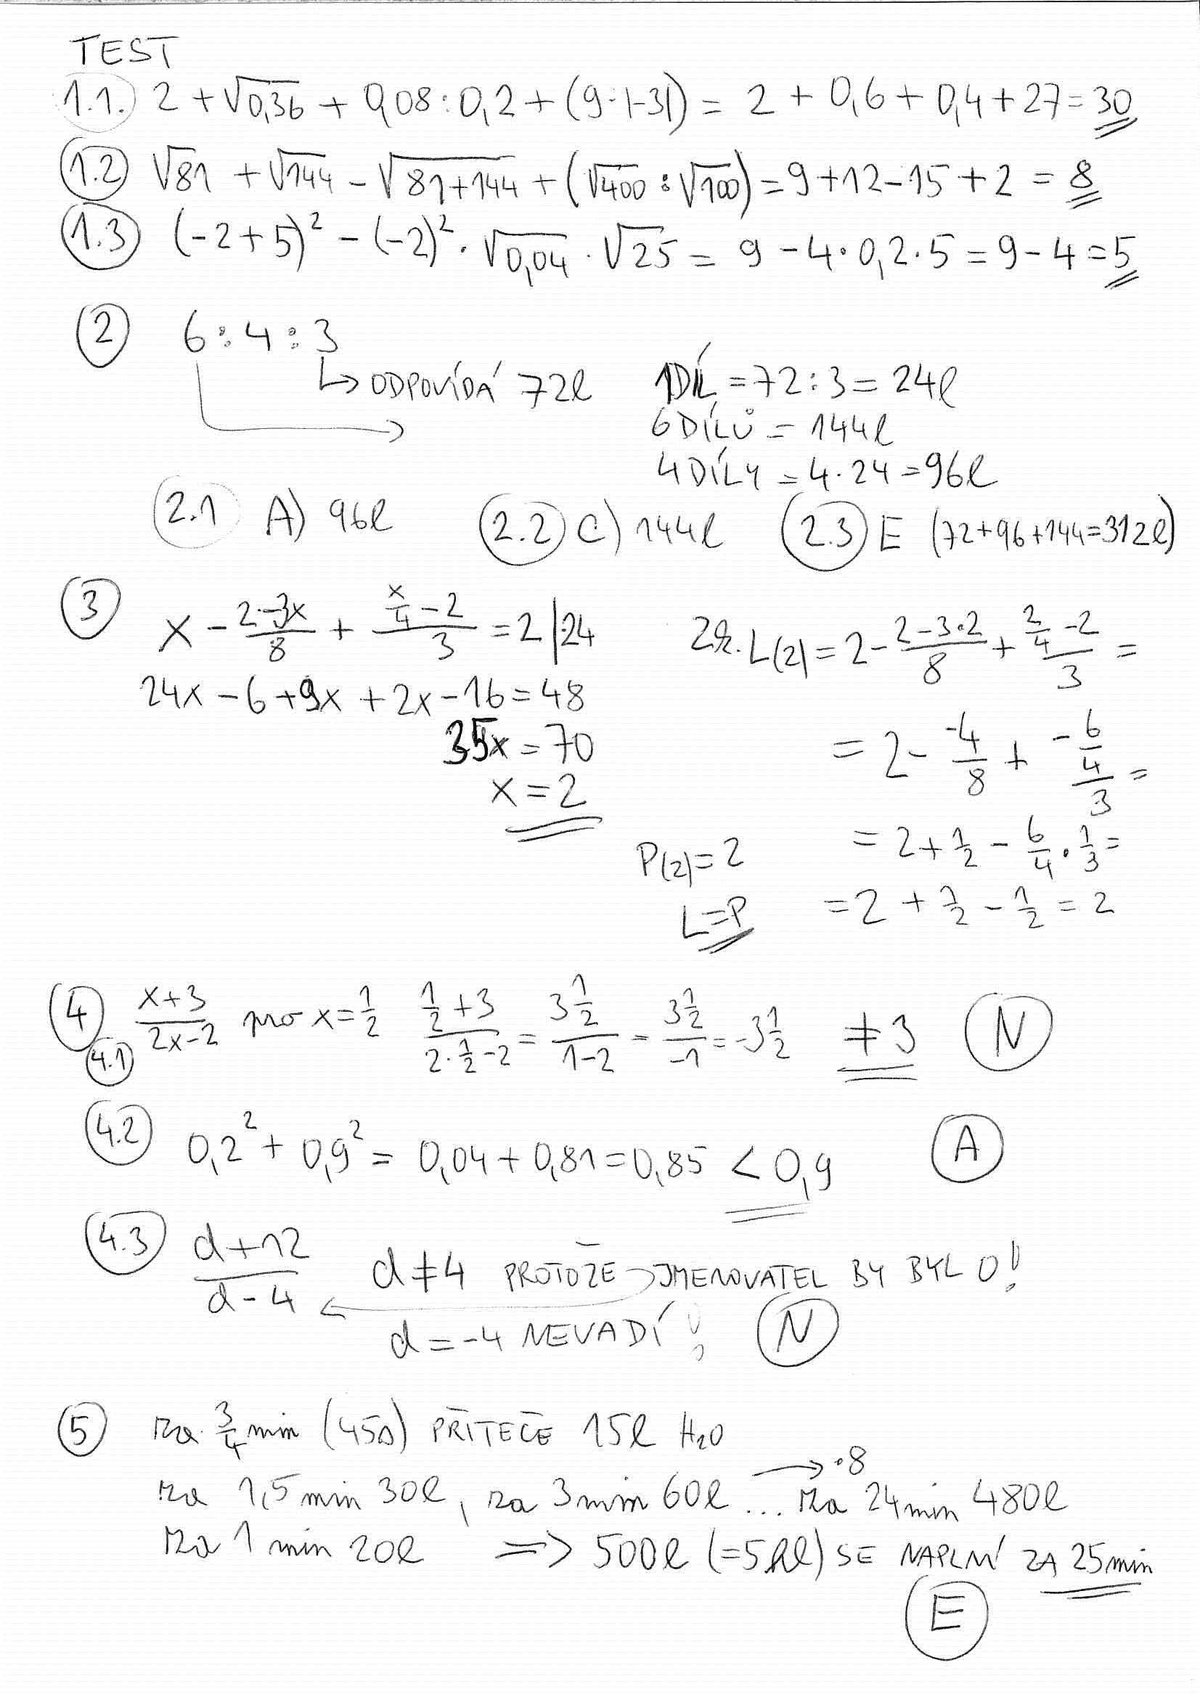 TEST
1.1. 2 + √0,36 + 0,08 : 0,2 + (9 · |-3|) = 2 + 0,6 + 0,4 + 27 = 30
1.2 √81 + √144 - √81+144 + (√400 : √100) = 9 + 12 - 15 + 2 = 8
1.3 (-2+5)² - (-2)² · √0,04 · √25 = 9 - 4 · 0,2 · 5 = 9 - 4 = 5
2 6 : 4 : 3
↳ ODPOVÍDÁ 72l 1DÍL = 72 : 3 = 24l
6 DÍLŮ = 144l
4 DÍLY = 4 · 24 = 96l
2.1 A) 96l 2.2 C) 144l 2.3 E (72+96+144=312l)
3 x - (2-3x)/8 + (x/4 - 2)/3 = 2 |·24
24x - 6 + 9x + 2x - 16 = 48
35x = 70
x = 2
Zk. L(2) = 2 - (2-3·2)/8 + (2/4 - 2)/3 =
= 2 - -4/8 + (-6/4)/3 =
= 2 + 1/2 - 6/4 · 1/3 =
= 2 + 1/2 - 1/2 = 2
P(2) = 2
L = P
4 4.1 (x+3)/(2x-2) pro x = 1/2 (1/2 + 3)/(2 · 1/2 - 2) = (3 1/2)/(1-2) = (3 1/2)/-1 = -3 1/2 ≠ 3 N
4.2 0,2² + 0,9² = 0,04 + 0,81 = 0,85 < 0,9 A
4.3 (d+12)/(d-4) d ≠ 4 PROTOŽE JMENOVATEL BY BYL 0!
d = -4 NEVADÍ! N
5 za 3/4 min (45s) PŘITEČE 15l H₂O
za 1,5 min 30l, za 3 min 60l ... → ·8 za 24 min 480l
za 1 min 20l => 500l (=5hl) SE NAPLNÍ ZA 25 min
E